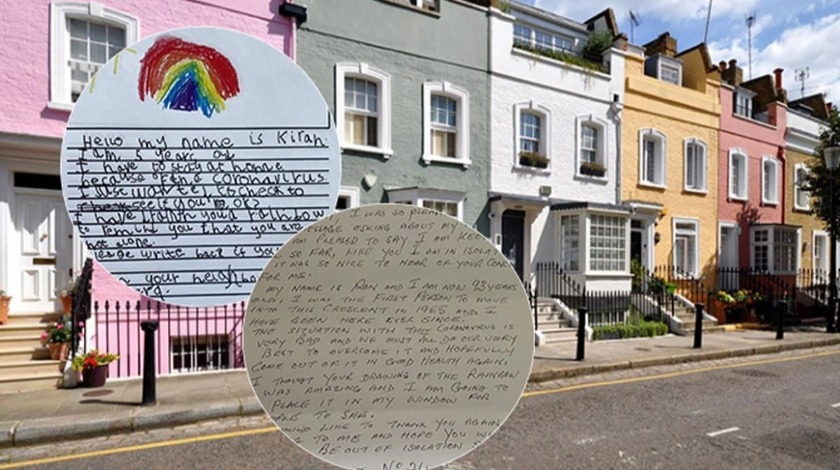 Hello my name is Kirah
I am 5 years old
I have to stay at home
because of the coronavirus
I just wanted to check to
see if you ok?
I have drawn you a rainbow
to remind you that you are
not alone.
Please write back if you
your
I was so
asking about my
am pleased to say I am
so far, like you I am in
was so nice to hear of your
for me.
My name is Ron and I am now 93 years
old, I was the first person to move
into this crescent in 1965 and I
have been here ever since.
The situation with this coronavirus is
very bad and we must all do our very
best to overcome it and hopefully
come out of it in good health again.
I thout your drawing of the rainbow
was amazing and I am going to
place it in my window for
to see.
would like to thank you again
to me and hope you
be out of isolation
No